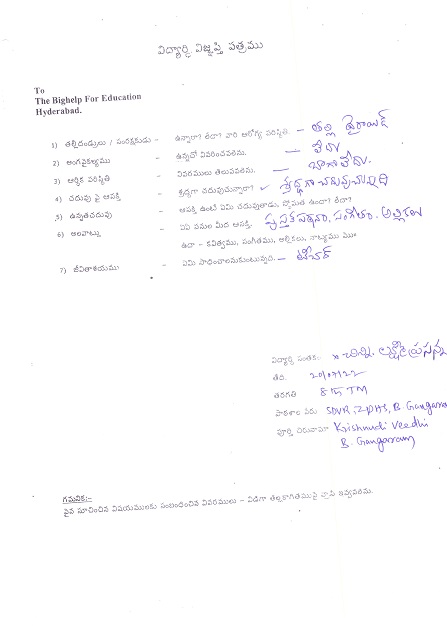 విద్యార్థి విజ్ఞప్తి పత్రము
To
The Bighelp For Education
Hyderabad.
1) తల్లిదండ్రులు / సంరక్షకుడు – ఉన్నారా? లేదా? వారి ఆరోగ్య పరిస్థితి – తల్లి థైరాయిడ్
2) అంగవైకల్యము – ఉన్నచో వివరించవలెను. – లేదు
3) ఆర్థిక పరిస్థితి – వివరములు తెలుపవలెను. – బాగాలేదు.
4) చదువు పై ఆసక్తి – శ్రద్ధగా చదువుచున్నారా? ✓ శ్రద్ధగా చదువుచున్నది
5) ఉన్నతచదువు – ఆసక్తి ఉంటే ఏమి చదువుతాడు, స్తోమత ఉందా? లేదా?
6) అలవాట్లు – ఏఏ పనుల మీద ఆసక్తి. పుస్తక పఠనం, సంగీతం, అల్లికలు
ఉదా – కవిత్వము, సంగీతము, అల్లికలు, నాట్యము
7) జీవితాశయము – ఏమి సాధించాలనుకుంటున్నది. – టీచర్
విద్యార్థి సంతకం: చిన్ని. లక్ష్మీ ప్రసన్న
తేది. 20/07/22
తరగతి 8th TM
పాఠశాల పేరు SDVR, ZPHS, B. Gangaram
పూర్తి చిరునామా Krishnudi Veedhi
B. Gangarram
గమనిక:-
పైన సూచించిన విషయములకు సంబంధించిన వివరములు – విడిగా తెల్లకాగితముపై వ్రాసి ఇవ్వవలెను.